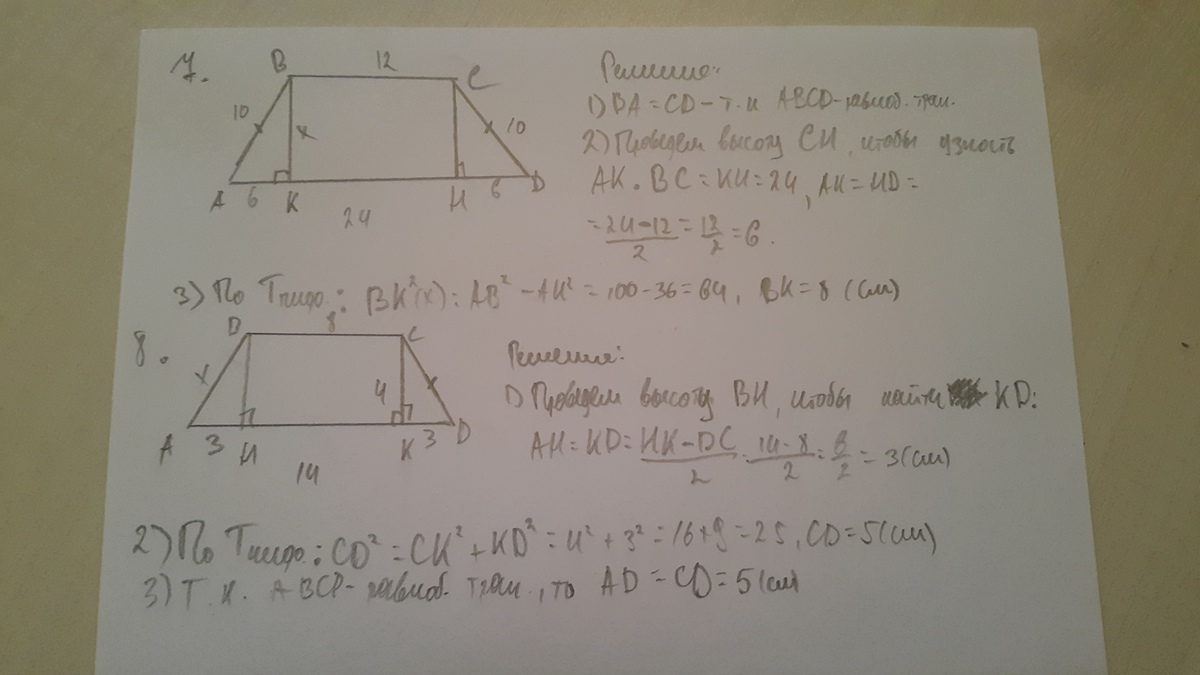 7.
B 12 C
10 x 10
A 6 K 24 H 6 D
Решение:
1) BA = CD - т.к ABCD-равноб. трап.
2) Проведём высоту CH, чтобы узнать
AK. BC = KH = 24, AK = HD =
= 24-12/2 = 12/2 = 6.
3) По Тпифо.: BK²(x) = AB² - AK² = 100 - 36 = 64, BK = 8 (см)
8.
B 8 C
x 4
A 3 H 14 K 3 D
Решение:
1) Проведём высоту BH, чтобы найти KD:
AH = KD = HK - BC/2 = 14-8/2 = 6/2 = 3(см)
2) По Тпифо.: CD² = CK² + KD² = 4² + 3² = 16+9 = 25, CD = 5(см)
3) Т.к. ABCD- равноб. трап., то AD = CD = 5(см)